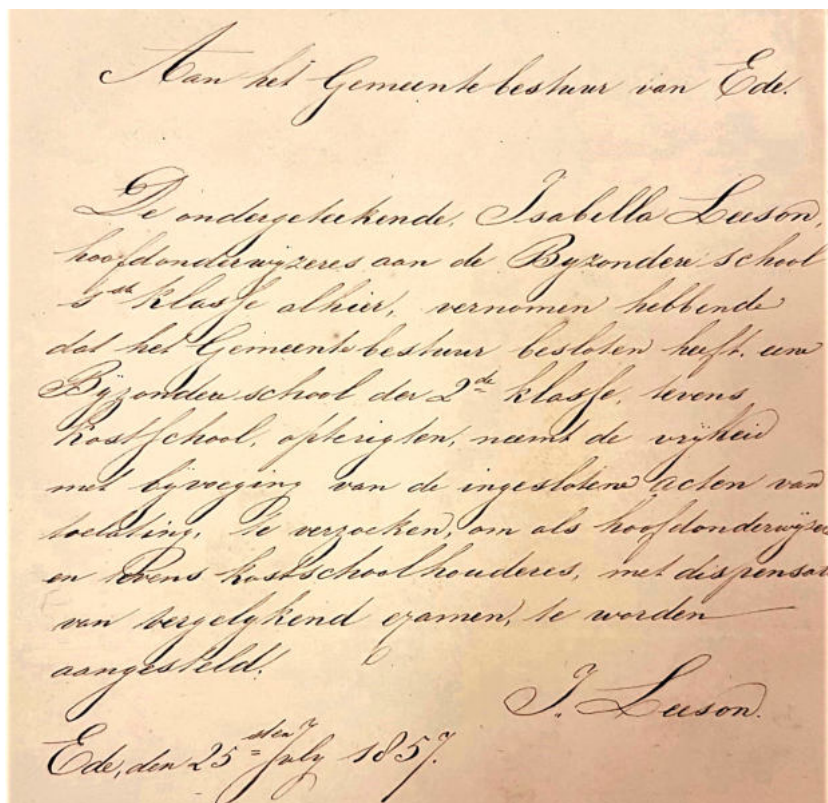 Aan het Gemeentebestuur van Ede.
De ondergeteekende, Isabella Leeson,
hoofdonderwyzeres aan de Byzondere school
1ste klasse alhier, vernomen hebbende
dat het Gemeentebestuur besloten heeft, eene
Byzondere school der 2de klasse, tevens
kostschool, opterigten, neemt de vrijheid
met bijvoeging van de ingeslotene acten van
toelating, te verzoeken, om als hoofdonderwijzer
en tevens kostschoolhouderes, met dispensat
van vergelykend examen, te worden
aangesteld.
J. Leeson.
Ede, den 25sten July 1857.